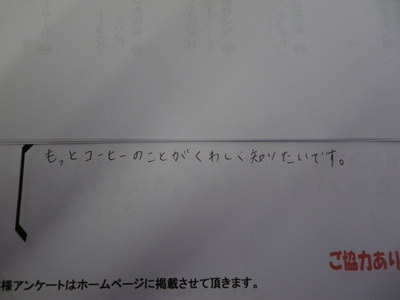 もっとコーヒーのことがくわしく知りたいです。
ご協力あり
様アンケートはホームページに掲載させて頂きます。